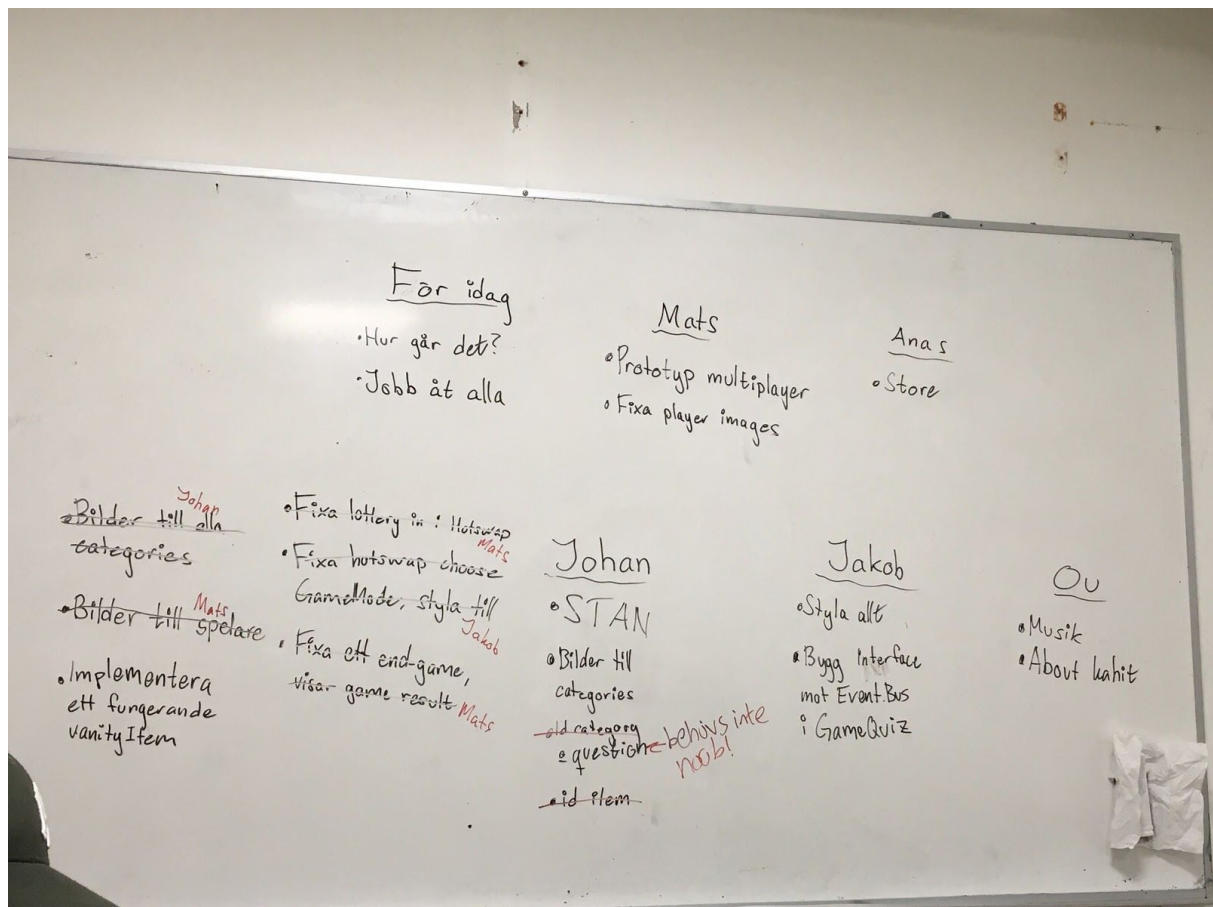 För idag
•Hur går det?
•Jobb åt alla
Mats
•Prototyp multiplayer
•Fixa player images
Anas
•Store
Johan
•Bilder till alla
categories
Mats
•Bilder till spelare
•Implementera
ett fungerande
vanityItem
•Fixa lottery in i Hotswap
Mats
•Fixa hotswap choose
GameMode, styla till
Jakob
•Fixa ett end-game,
visar game result Mats
Johan
•STAN
•Bilder till
categories
•id category
•question behövs inte
noob!
•id item
Jakob
•Styla allt
•Bygg interface
mot Event.Bus
i GameQuiz
Ov
•Musik
•About kahit